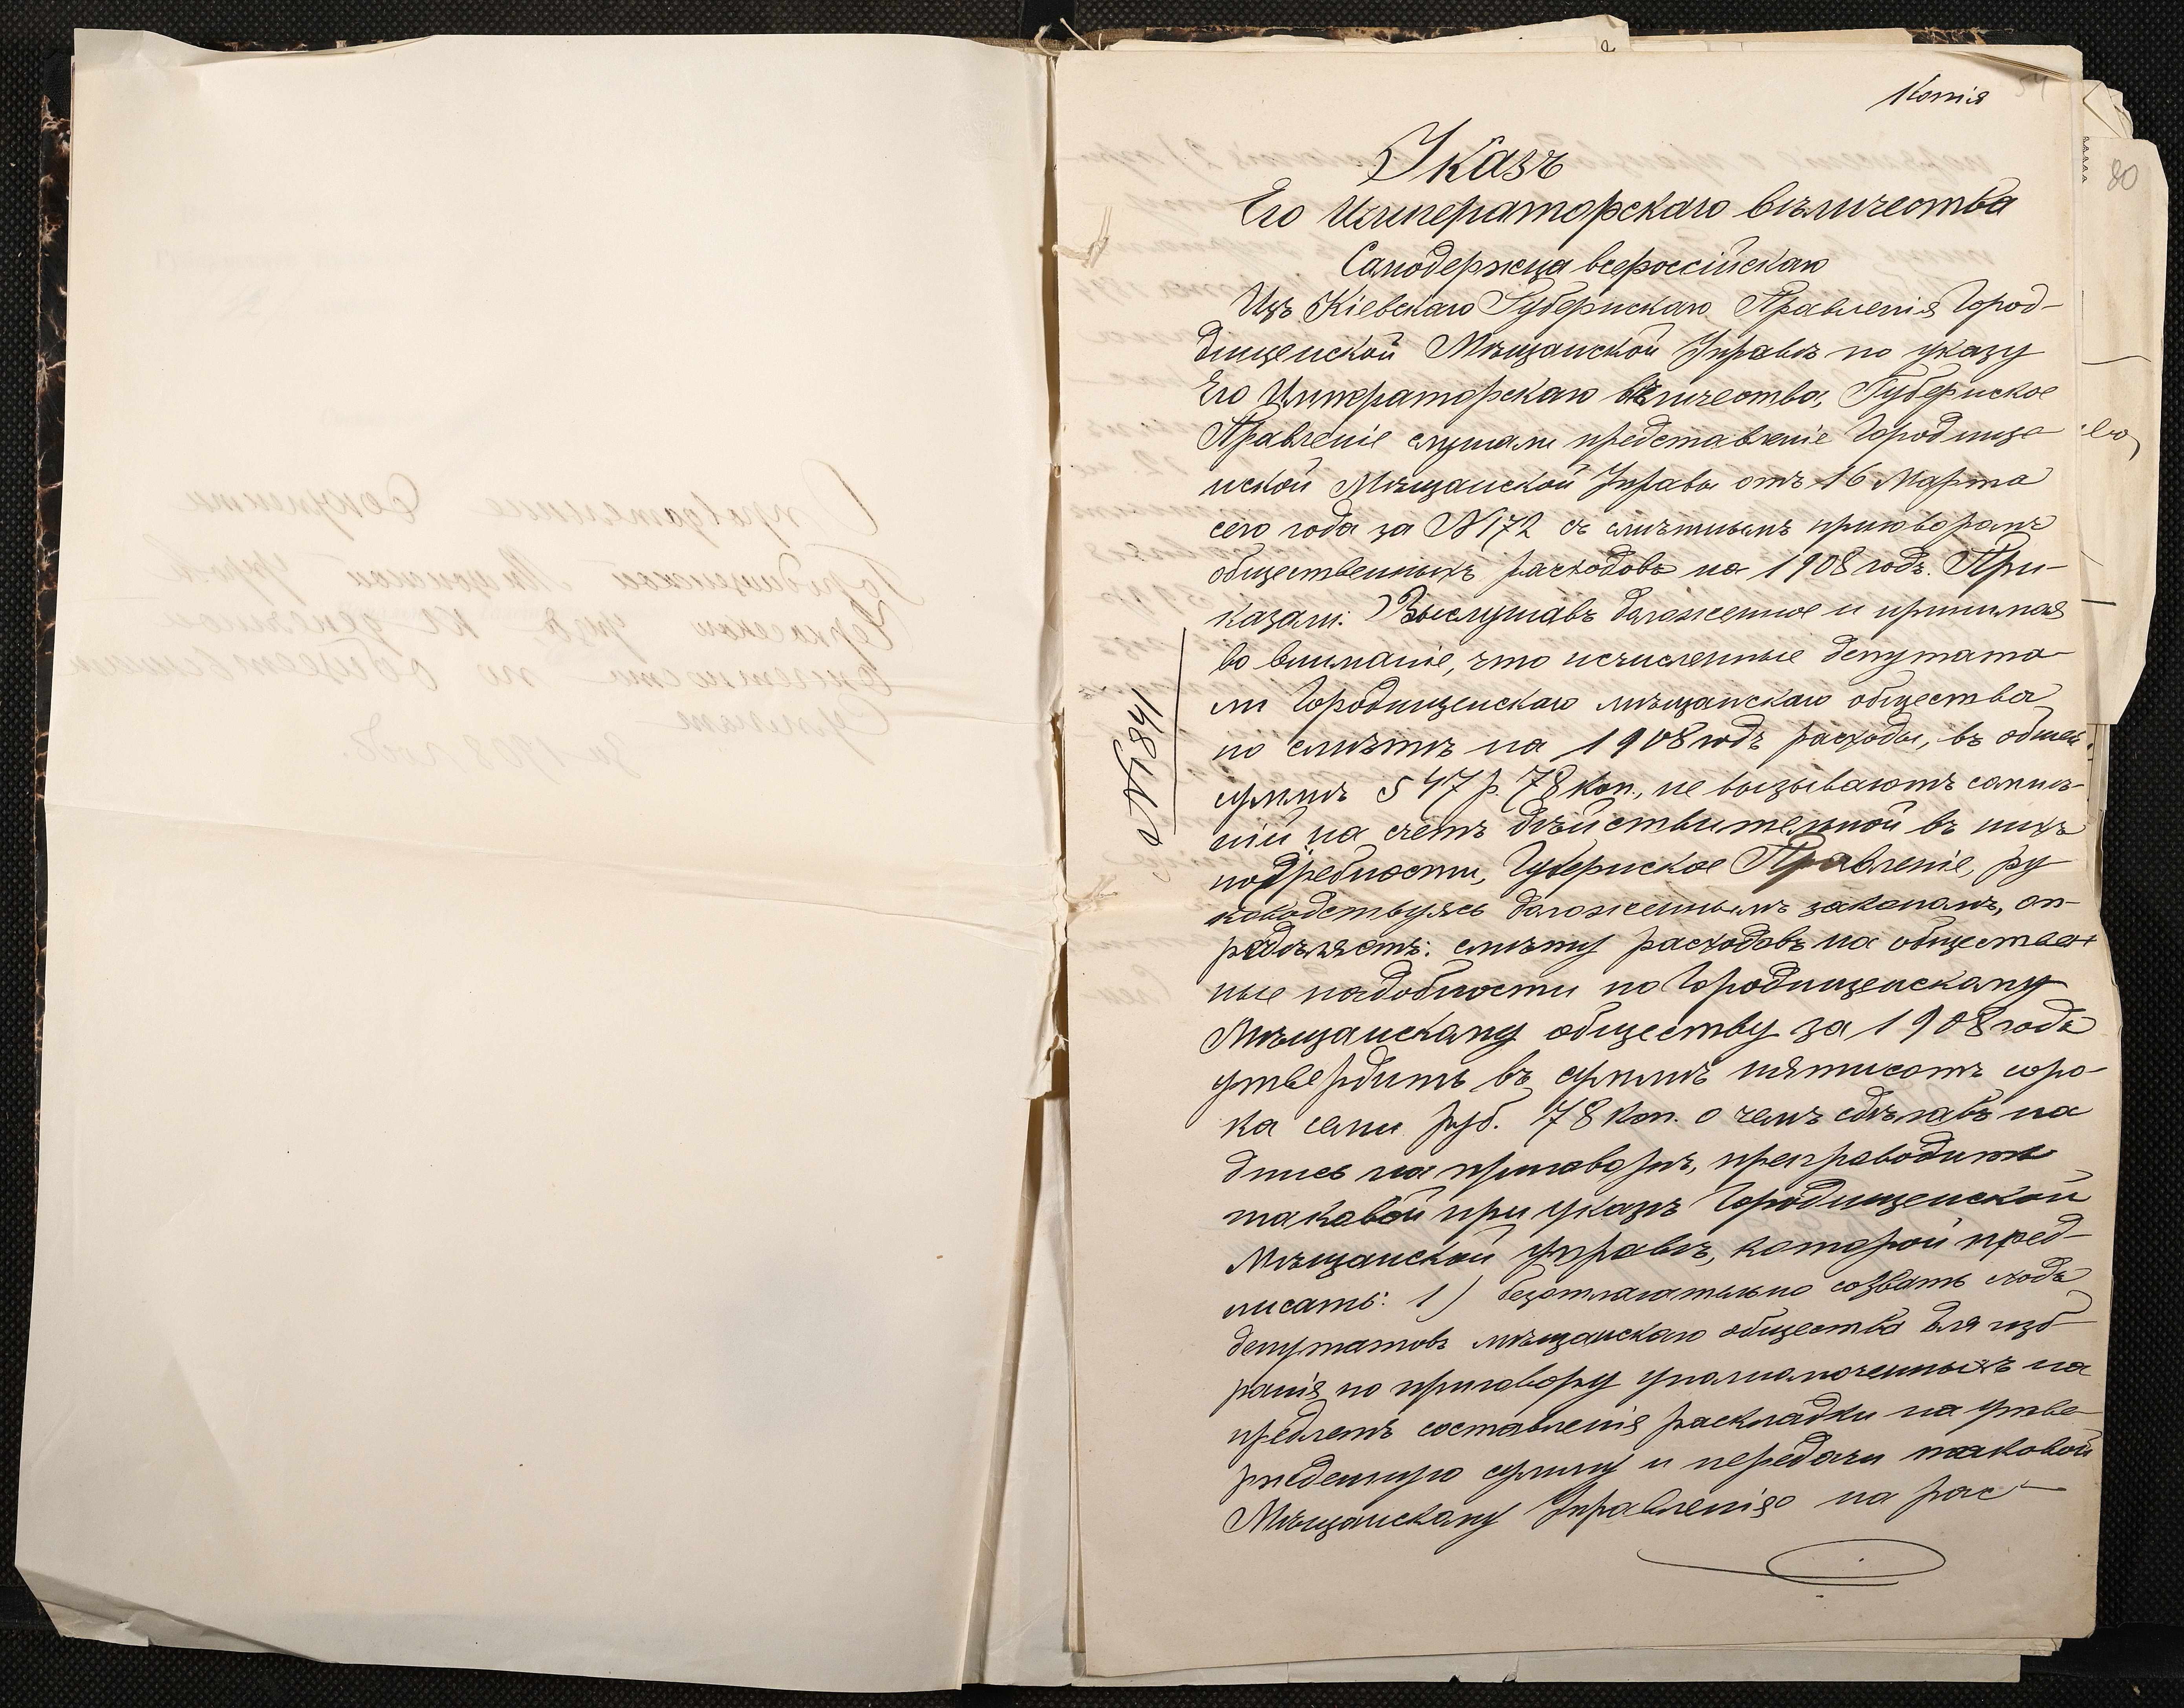 Копія
54
80
Указъ
Его Императорскаго Величества
Самодержца всероссійскаго
Изъ Кіевскаго Губернскаго Правленія Город-
ищенской Мѣщанской Управѣ по указу
Его Императорскаго Величества, Губернское
Правленіе слушали представленіе Городище-
нской Мѣщанской Управы отъ 16 Марта
сего года за N172 съ смѣтнымъ приговоромъ
общественныхъ расходовъ на 1908 годъ. При-
казали: Выслушавъ доложенное и принимая
во вниманіе, что исчисленные депутата-
ми Городищенскаго мѣщанскаго общества
по смѣтѣ на 1908 годъ расходы, въ общей
суммѣ 547 р. 78 коп., не вызываютъ сомнѣ-
ній на счетъ дѣйствительной въ нихъ
подребности, Губернское Правленіе, ру
ководствуясь доложеннымъ закономъ, оп-
редѣляетъ: смѣту расходовъ на обществен
ные надобности по Городищенскому
Мѣщанскому обществу за 1908 годъ
утвердить въ суммѣ пятисотъ соро-
ка семи руб. 78 коп. о чемъ сдѣлавъ на
дпись на приговорѣ, препроводить
таковой при указѣ Городищенской
Мѣщанской управѣ, которой пред-
писать: 1) безотлагательно созвать сходъ
депутатовъ мѣщанскаго общества для изб
ранія по приговору уполномоченныхъ на
предметъ составленія раскладки на утве-
ржденную сумму и передачи таковой
Мѣщанскому Управленію на рас-
N1841